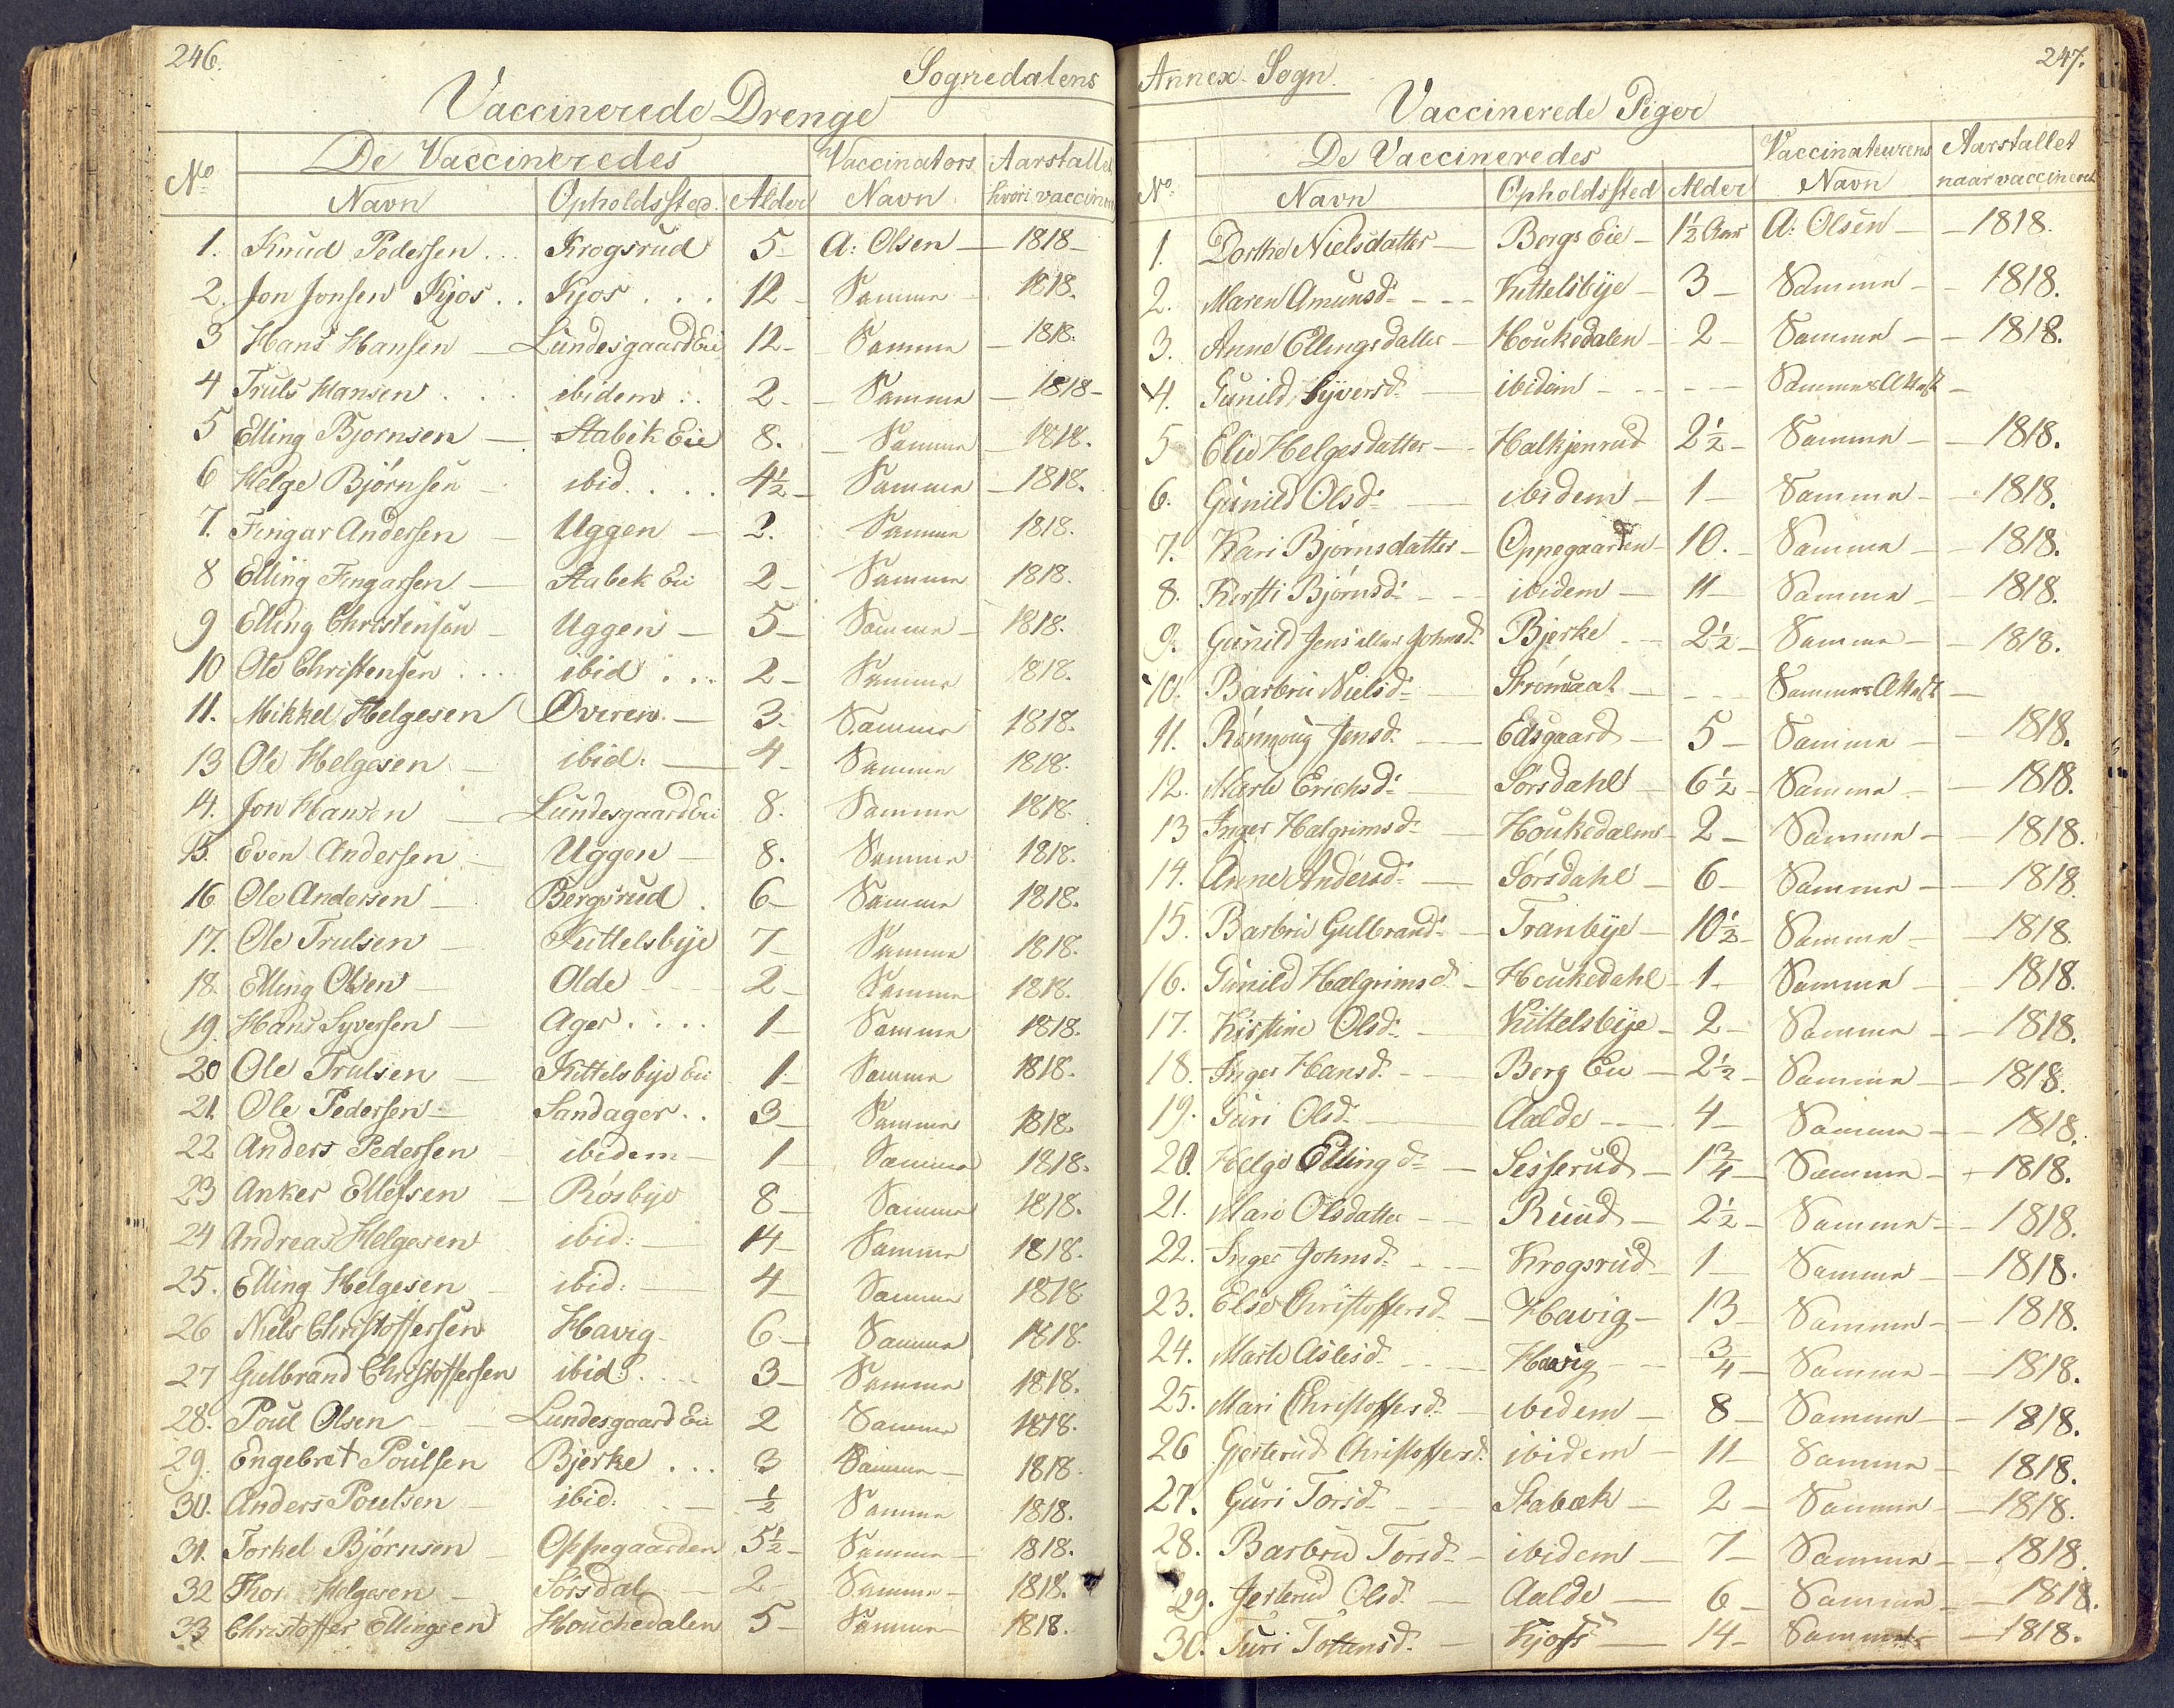 246.
Sognedalens
Vaccinerede Drenge
De Vaccineredes Vaccinators Aarstallet
No Navn Opholdssted Alder Navn hvori vaccineret
1. Knud Pedersen . . Krogsrud 5 - A: Olsen — 1818 -
2. Jon Jonsen Kjos . . Kjos . . . 12 - Samme - 1818.
3 Hans Hansen — Lundesgaard Eie 12 - Samme - 1818.
4 Truls Hansen . . . ibidem . . 2 - Samme - 1818 -
5 Elling Bjornsen — Stabek Eie 8. - Samme - 1818.
6 Helge Bjørnsen - ibid. . . . 4½ - Samme - 1818.
7. Fingar Andersen - Uggen — 2. Samme 1818.
8 Elling Fingarsen — Stabek Eie 2 - Samme 1818.
9 Elling Christensen - Uggen — 5 - Samme - 1818.
10 Ole Christensen . . . ibid . . . 2 - Samme 1818.
11. Mikkel Helgesen Øveren — 3. Samme 1818.
13 Ole Helgesen — ibid: — 4 - Samme 1818.
14. Jon Hansen — Lundesgaard Eie 8. Samme 1818.
15. Even Andersen - Uggen — 8. Samme 1818.
16 Ole Andersen — Bergsrud . 6 - Samme 1818.
17. Ole Trulsen — Kittelsbye 7 - Samme 1818.
18. Elling Olsen — Olde - - - 2 - Samme 1818.
19. Hans Syversen — Ager . . . . 1 - Samme 1818.
20 Ole Trulsen — Kittelsbye Eie 1 - Samme 1818.
21. Ole Pedersen — Sandager . . 3 - Samme 1818.
22 Anders Pedersen - ibidem — 1 - Samme 1818.
23 Anker Ellefsen — Røsbye 8 - Samme 1818.
24 Andreas Helgesen ibid: — 14 - Samme 1818.
25. Elling Helgesen - ibid: — 4 - Samme 1818
26 Niels Christoffersen Havig - 6 - Samme 1818.
27 Gulbrand Christoffersen ibid: . . . 3 - Samme 1818.
28. Poul Olsen — Lundesgaard Eie 2 Samme 1818.
29. Engebret Poulsen Bjerke . . . 3 Samme - 1818.
30. Anders Poulsen - ibid: - — ½ Samme 1818.
31. Torkel Bjørnsen - Oppegaarden 5½ - Samme - 1818.
32 Thor Helgesen - Sørsdal — 2 - Samme - 1818.
33 Christoffer Ellingsen Houchedalen 5 - Samme 1818.
247.
Annex - Sogn.
Vaccinerede Piger
De Vaccineredes Vaccinateurens Aarstallet
No. Navn Opholdssted Alder Navn naar vaccineret
1. Dorthe Nielsdatter — Borgs Eie - 1½ Aar A: Olsen - - 1818.
2. Maren Amunsd: - - - Kittelsbye - 3 - Samme - - 1818.
3. Anne Ellingsdatter — Houkedalen - 2 - Samme - - 1818.
4. Gunild Syversd: — ibidem - - - - Sammes Attest -
5 Elie Helgesdatter — Halkjenrud 2½ - Samme - - 1818.
6. Gunild Olsd: — ibidem - 1 - Samme - - 1818.
7. Kari Bjørnsdatter - Oppegaarden - 10. - Samme - - 1818.
8. Kirsti Bjørnsd: - - ibidem — 11 - Samme - - 1818.
9. Gunild Jens eller Johnsd: Bjerke - - 2½ - Samme - - 1818.
10. Barbru Nielsd: — - - - Sammes Attest -
11. Jensd: — Edsgaard - 5 - Samme - - 1818.
12. Marte Erichsd: — Sørsdahl - 6½ - Samme - - 1818.
13 Inger Halgrimsd: — Houkedalens - 2 - Samme - - 1818.
14. Anne Andersd: — Sørsdahl - 6 - Samme - - 1818.
15. Barbru Gulbrandd: - Tranbye - 10½ - Samme - - 1818.
16. Gunild Halgrimsd: - Houkedahl - 1. Samme - - 1818.
17. Kirstine Olsd: - Kittelsbye - 2 - Samme - - 1818.
18. Inger Hansd: - - Borg Eie - 2½ - Samme - - 1818.
19. Guri Olsd: — Aalde - - 4 - Samme - - 1818.
20. Helge Ellingd: - Sesserud - 1¾ - Samme - - 1818.
21. Mari Olsdatter - - Ruud - 2½ - Samme - - 1818.
22. Inger Johnsd: - - Krogsrud - 1 - Samme - - 1818.
23. Else Christoffersd: - Havig - 13 - Samme - - 1818.
24. Marte Aslesd: - - Havig - - ¾ - Samme - - 1818.
25. Mari Christoffersd: - ibidem - 8 - Samme - - 1818.
26 Gjertrud Christoffersd: ibidem - 11 - Samme - 1818.
27. Guri Torsd: - - Stabæk - 2 - Samme - - 1818.
28. Barbru Torsd: - ibidem - 7 - Samme - - 1818.
29. Jertrud Olsd: - Aalde - 6 - Samme - - 1818.
30. Turi - Kjoss — 14 - Samme - - 1818.